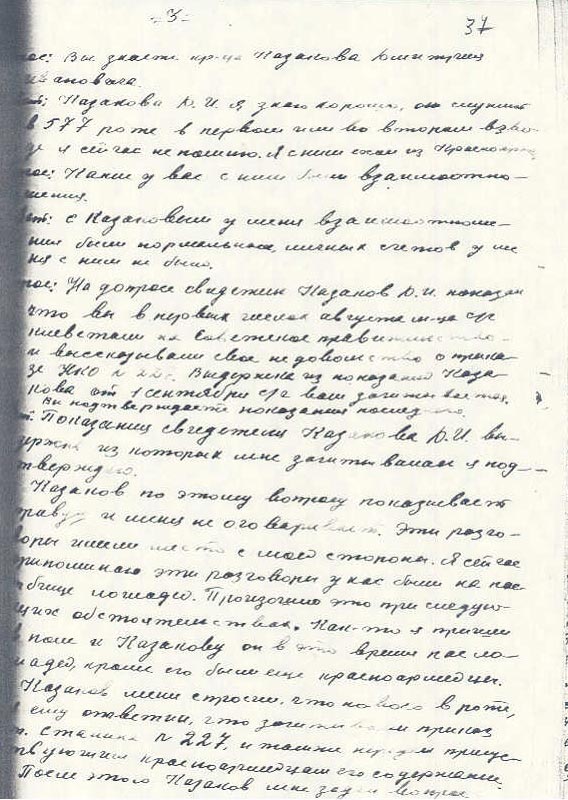 -3-
37
рос: Вы знаете кр-ца Казакова Дмитрия
ановича.
ет: Казакова Д.И. я знаю хорошо, он служил
в 577 роте в первом или во втором взво-
де я сейчас не помню. Я с ним из Красноярска
рос: Какие у вас с ним были взаимоотно-
шения.
ет: С Казаковым у меня взаимоотноше-
ния были нормальные, личных счетов у ме
ня с ним не было.
рос: На допросе свидетель Казаков Д.И. показал
что вы в первых числах августа м-ца с/г
клеветали на Советское правительство
и высказывали свое недовольство о прика-
зе НКО № 227. Выдержка из показаний Каза-
кова от 1 сентября с/г вам зачитывается.
Вы подтверждаете показания последнего.
ет: Показания свидетеля Казакова Д.И. вы-
держка из которых мне зачитывалась я под-
тверждаю.
Казаков по этому вопросу показывает
правду и меня не оговаривает. Эти разго-
воры имели место с моей стороны. Я сейчас
припоминаю эти разговоры у нас были на пас-
тбище лошадей. Произошло это при следую-
щих обстоятельствах. Как-то я пришел
в поле к Казакову он в это время пас ло-
шадей, кроме его были еще красноармейцы.
Казаков меня спросил, что нового в роте,
я ему ответил, что зачитывали приказ
т. Сталина № 227, и также передал присут-
ствующим красноармейцам его содержание.
После этого Казаков мне задал вопрос